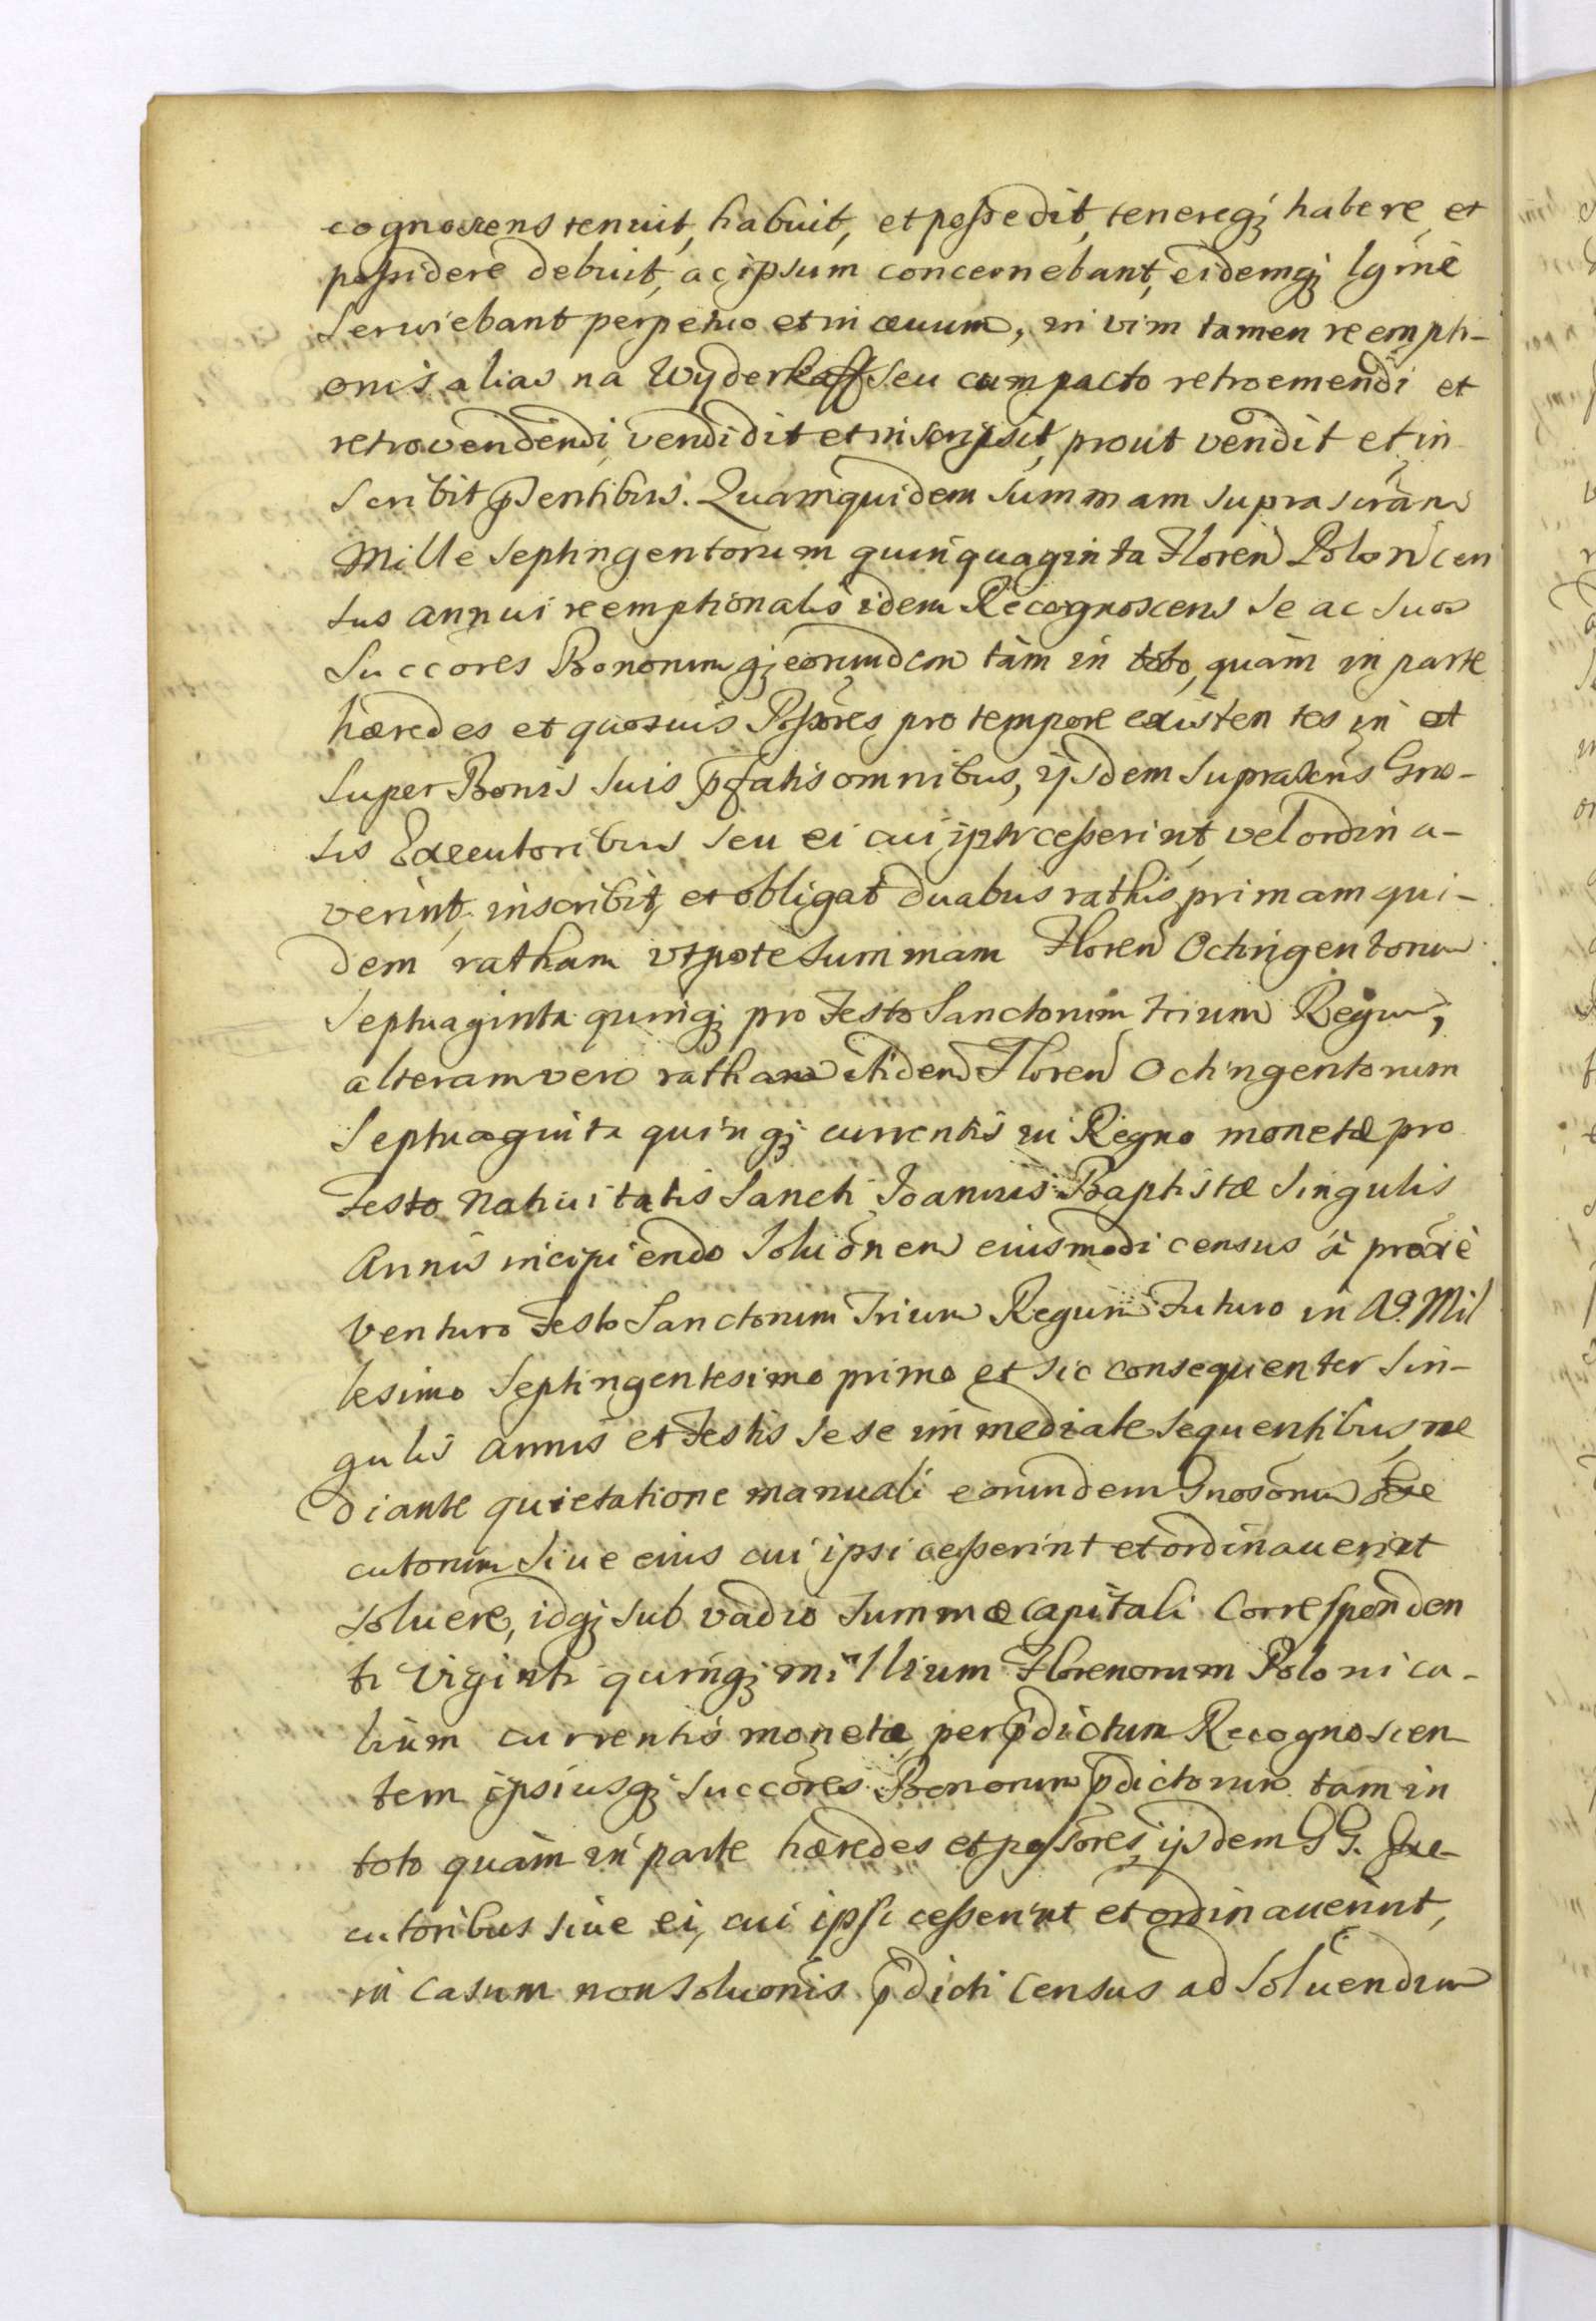 cognoscens tenuit, habuit, et possedit, tenereq; habere, et
possidere debuit, ac ipsum concernebant, eidemq; lgıme
Serviebant perpetuo et in æuum, in vim tamen reempti-
onis alias na Wyderkaff seu cum pacto retroemendi et
retrovendendi, vendidit et inscripsit, prout vendit et in
Scribit pñsentibus. Quamquidem Summam suprascrãm
Mille Septingentorum quinquaginta Floren Polon cen
sus annui reemptionalis idem Recognoscens se ac suos
Succõres Bonorumq; eorundem tàm in toto, quàm in parte
hæredes et quosuis Possõres pro tempore existentes in et
super Bonis suis p̃fatis omnibus, ijsdem suprascris Gno-
sis Executoribus seu ei cui ipsi cesserint, vel ordina-
verint, inscribit, et obligat duabus rathis primam qui-
dem ratham vtpote summam Floren Octingentorum
Septuaginta quinq; pro Festo Sanctorum Trium Regum,
alteram vero ratham itidem Floren Octingentorum
Septuaginta quinq; currentis in Regno monetæ pro
Festo Natiuitatis Sancti Joannis Baptistæ singulis
Annis incipiendo Soluõnem eiusmodi census à proxè
venturo Festo Sanctorum Trium Regum futuro in Aº. Mil
lesimo Septingentesimo primo et sic consequenter sin-
gulis annis et Festis sese immediate sequentibus, me
diante quietatione manuali eorundem Gnosorum Exe
cutorum siue eius cui ipsi cesserint et ordinauerint
soluere, idq; sub vadio summæ capitali Corresponden
ti viginti quinq; millium Florenorum Polonica-
lium currentis monetæ, per p̃dictum Recognoscen
tem ipsiusq; succõres Bonorum p̃dictorum tam in
toto quàm in parte hæredes et possõres, ijsdem GG. Exe-
cutoribus siue ei, cui ipsi cesserint et ordinauerint,
in casum non soluõnis p̃dicti Census ad soluendum